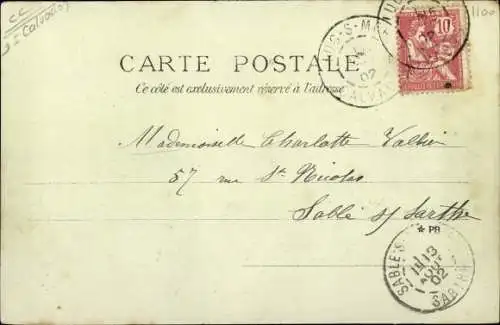 CC
(Calvados)
1100
10
CARTE POSTALE
Ce côté est exclusivement réservé à l'adresse
Mademoiselle Charlotte Vallier
57 rue St Nicolas
Sablé s/ Sarthe
* PB
SABLE S
13
AOUT
02
SARTHE